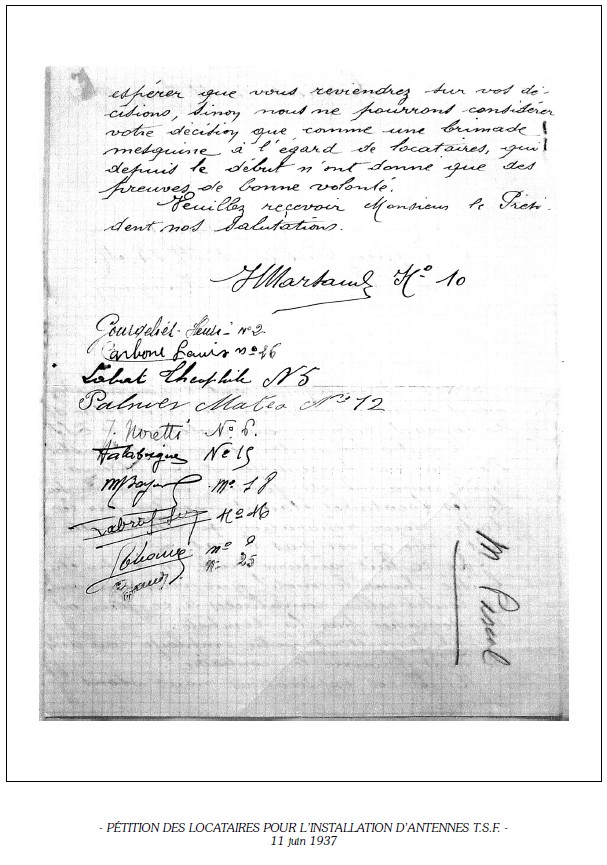 espérer que vous reviendrez sur vos dé-
cisions, sinon nous ne pourrons considérer
votre décision que comme une brimade
mesquine à l'égard de locataires, qui
depuis le début n'ont donné que des
preuves de bonne volonté.
Veuillez recevoir Monsieur le Prési-
dent nos salutations.
N° 10
n° 2
Carbone Louis n° 26
Labat Théophile N 5
Palmer Mateo N° 12
J. Moretti N° 6.
N° 15
N° 18
N° 16
n° 9
n° 25
M Pascal
- PÉTITION DES LOCATAIRES POUR L'INSTALLATION D'ANTENNES T.S.F. -
11 juin 1937